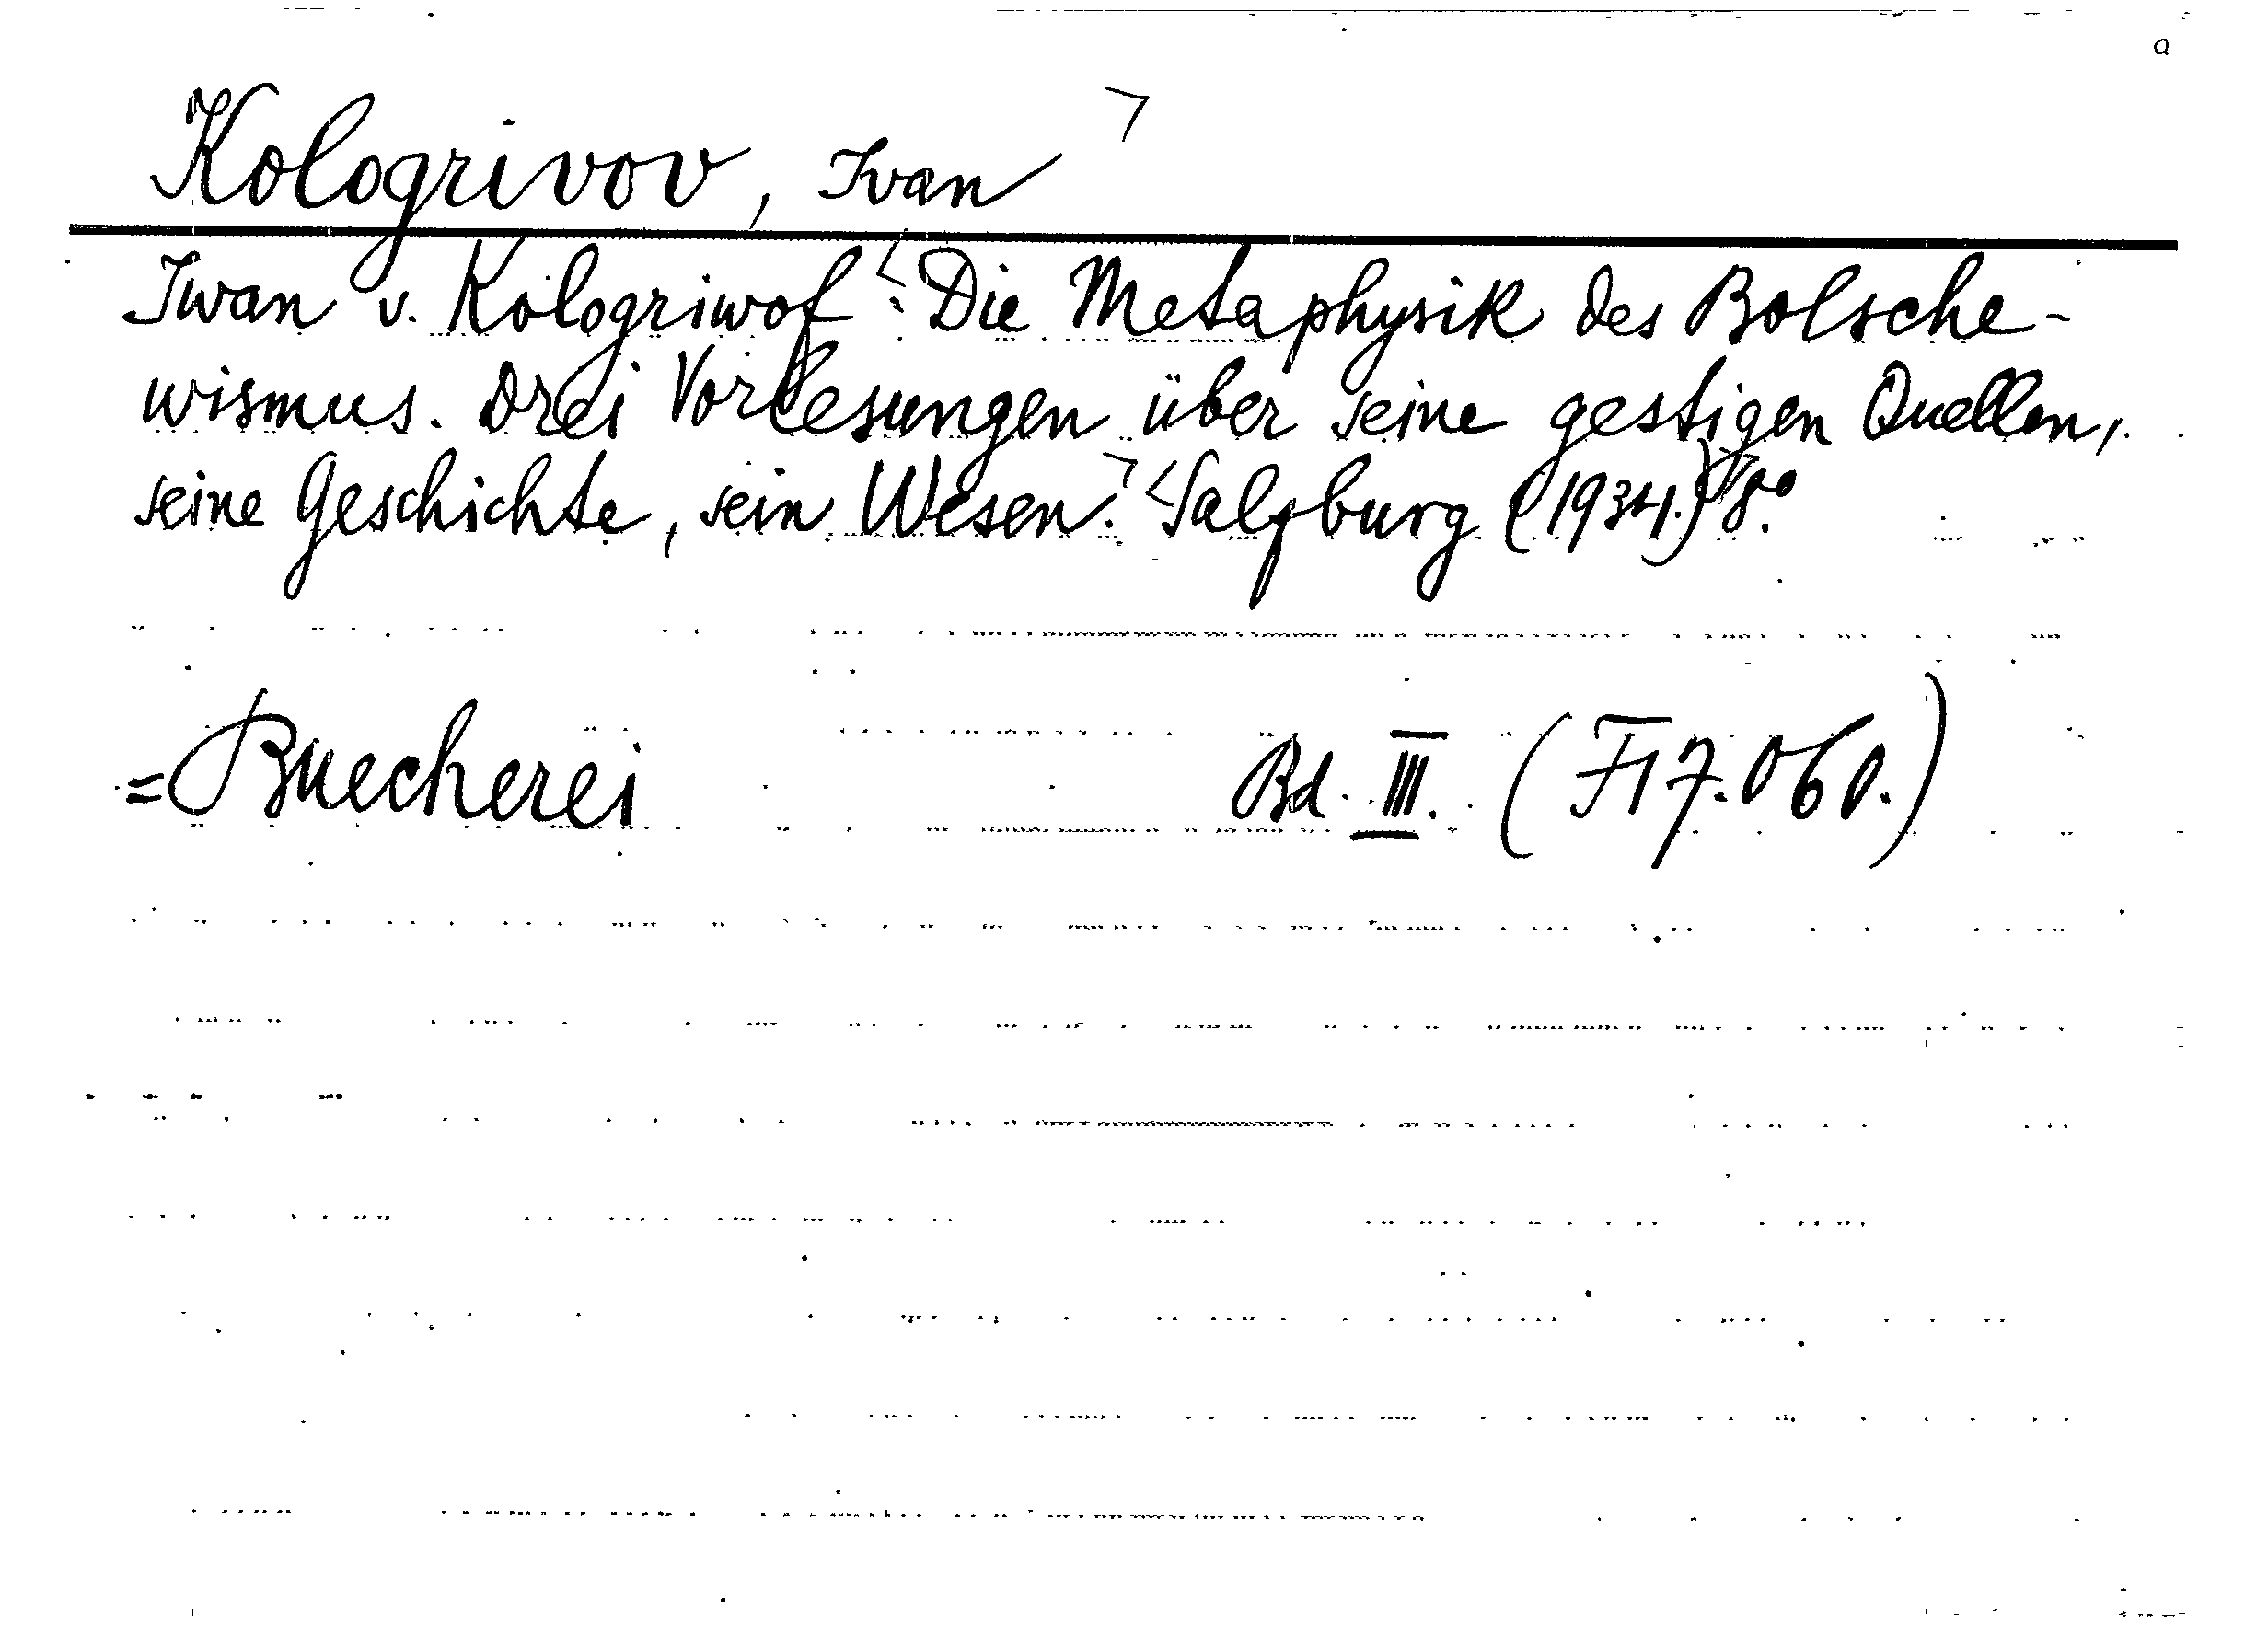 a
Kologrivov, Ivan
Iwan v. Kologriwof: Die Metaphysik des Bolsche-
wismus. Drei Vorlesungen über seine gestigen Quellen,
seine Geschichte, sein Wesen. Salzburg (1934.) 8°.
=Buecherei Bd. III. (F17.060.)